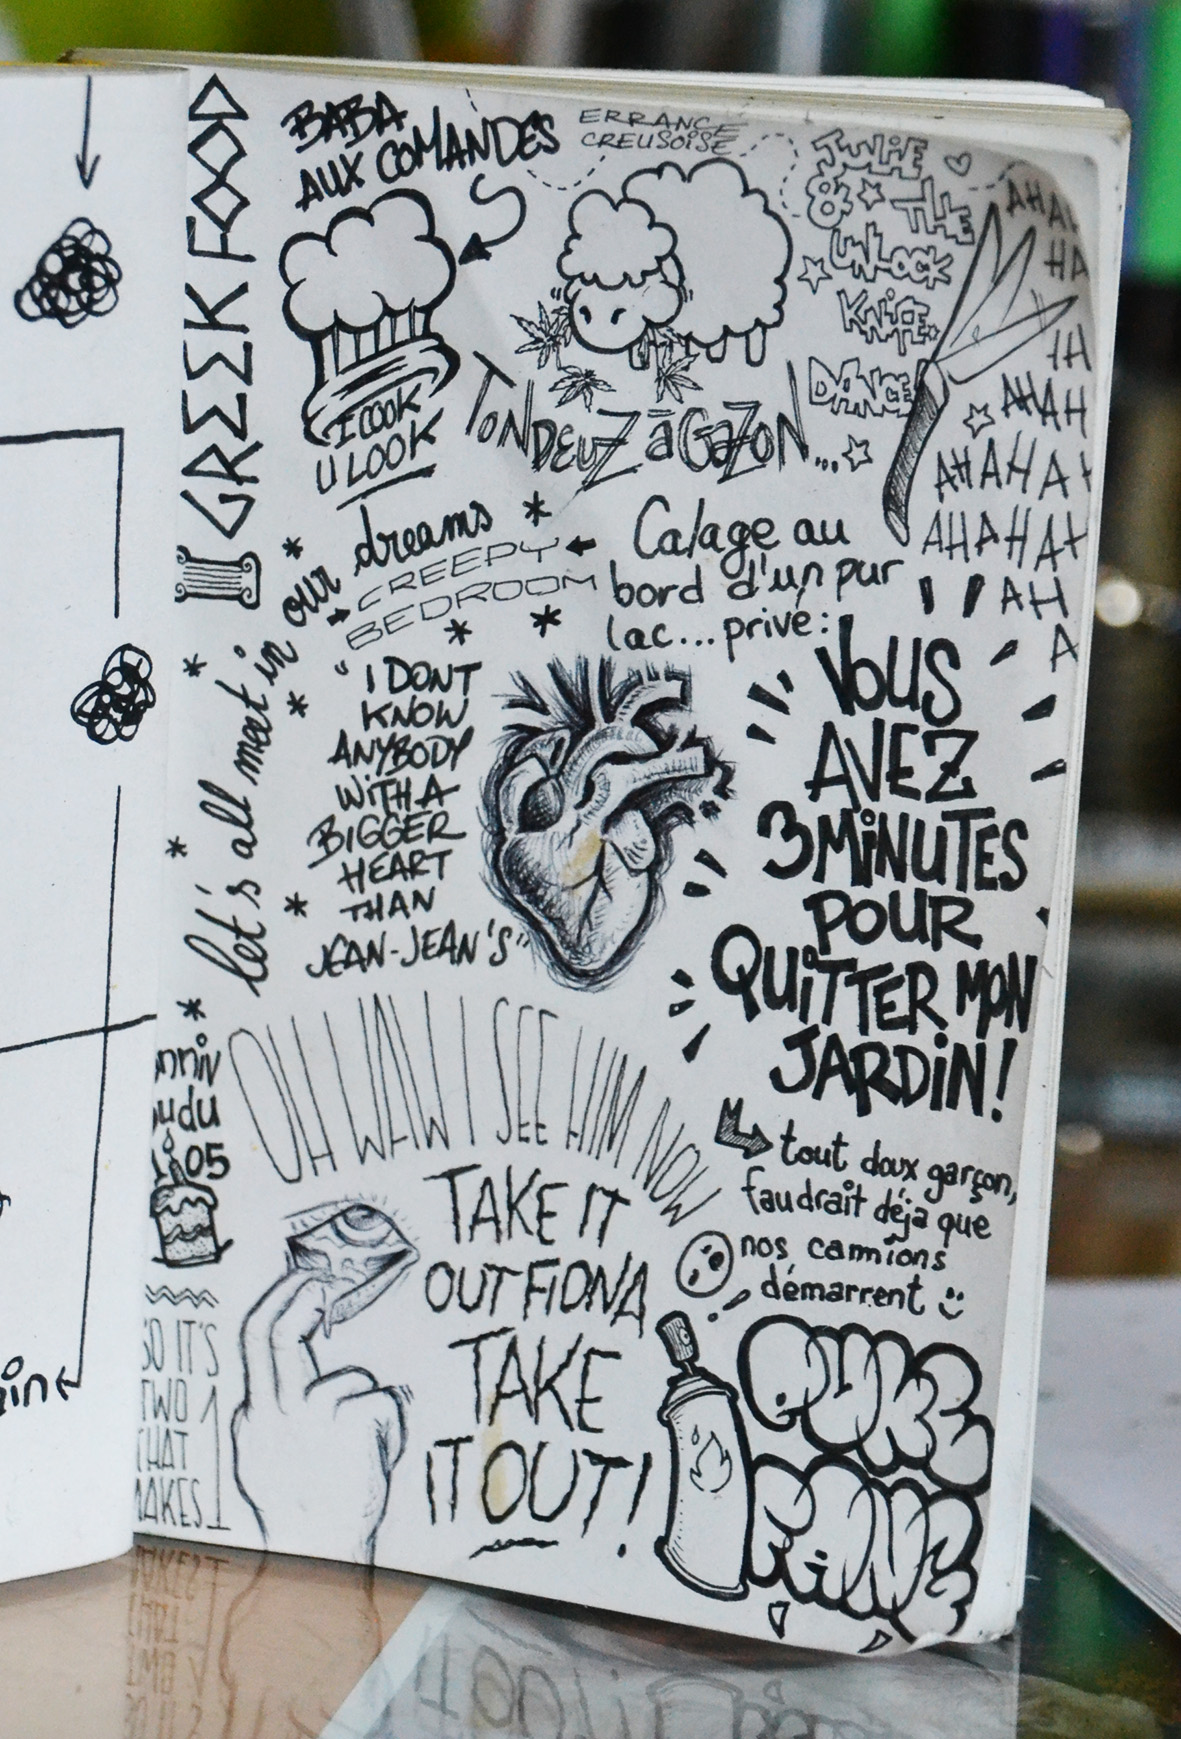 GREEK FOOD
BABA
AUX COMANDES
I COOK
U LOOK
ERRANCE
CREUSOISE
TONDEUZ à GaZON...
JULIE
& THE
UNLOCK
KNIFE
DANCE!
AHA
HA
HA
AHAH
AHAHA
AHAHAH
AH
A
let's all meet in our dreams
CREEPY
BEDROOM
Calage au
bord d'un pur
lac... privé:
VOUS
AVEZ
3 MiNUTES
POUR
QUiTTER MON
JARDiN!
tout doux garçon,
faudrait déja que
nos camions
démarrent
"I DONT
KNOW
ANYBODY
WiTH A
BIGGER
HEART
THAN
JEAN-JEAN'S"
OH WAW I SEE HIM NOW
TAKE IT
OUT FIONA
TAKE
IT OUT!
du
05
SO IT'S
TWO
THAT
MAKES 1
PUKE
FiNG